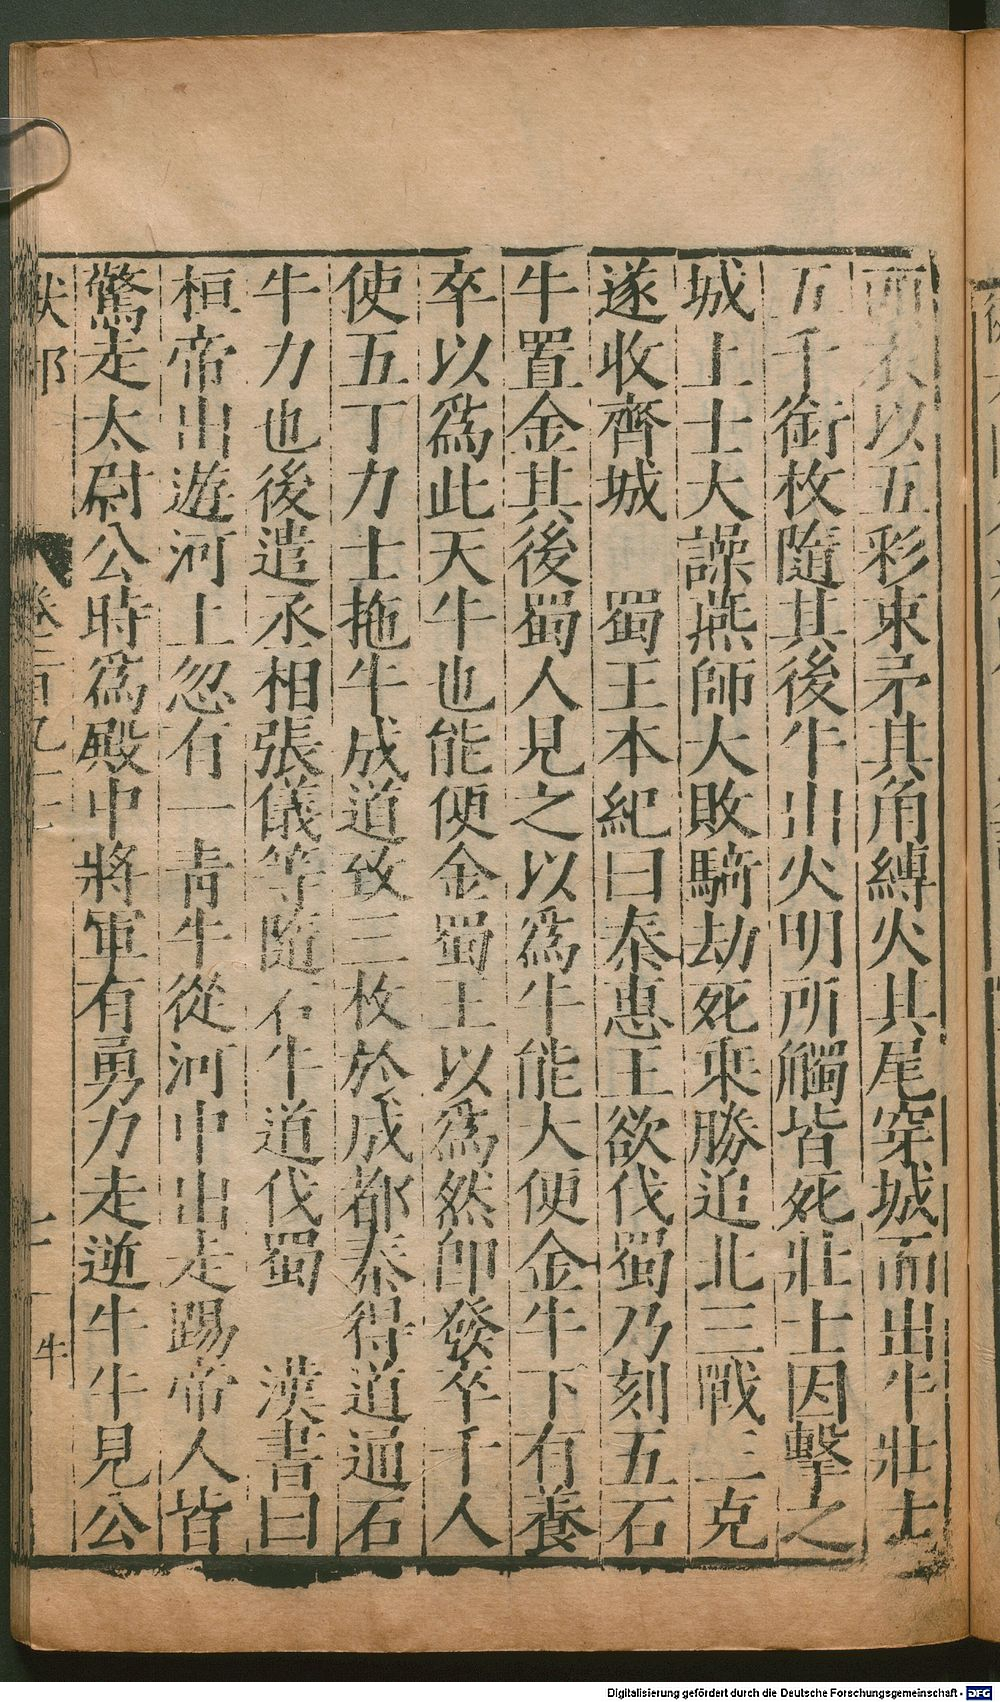 而衣以五彩束矛其角縛火其尾穿城而出牛壯士
五千銜枚隨其後牛出火明所觸皆死壯士因擊之
城上士大譟燕師大敗騎劫死乘勝追北三戰三克
遂收齊城　蜀王本紀曰秦惠王欲伐蜀乃刻五石
牛置金其後蜀人見之以爲牛能大便金牛下有養
卒以爲此天牛也能便金蜀王以爲然卽發卒千人
使五丁力士拖牛成道致三枚於成都秦得道通石
牛力也後遣丞相張儀等隨石牛道伐蜀　漢書曰
桓帝出遊河上忽有一青牛從河中出走踢帝人皆
驚走太尉公時爲殿中將軍有勇力走逆牛牛見公
獸部　卷二百九十七　牛
Digitalisierung gefördert durch die Deutsche Forschungsgemeinschaft - DFG